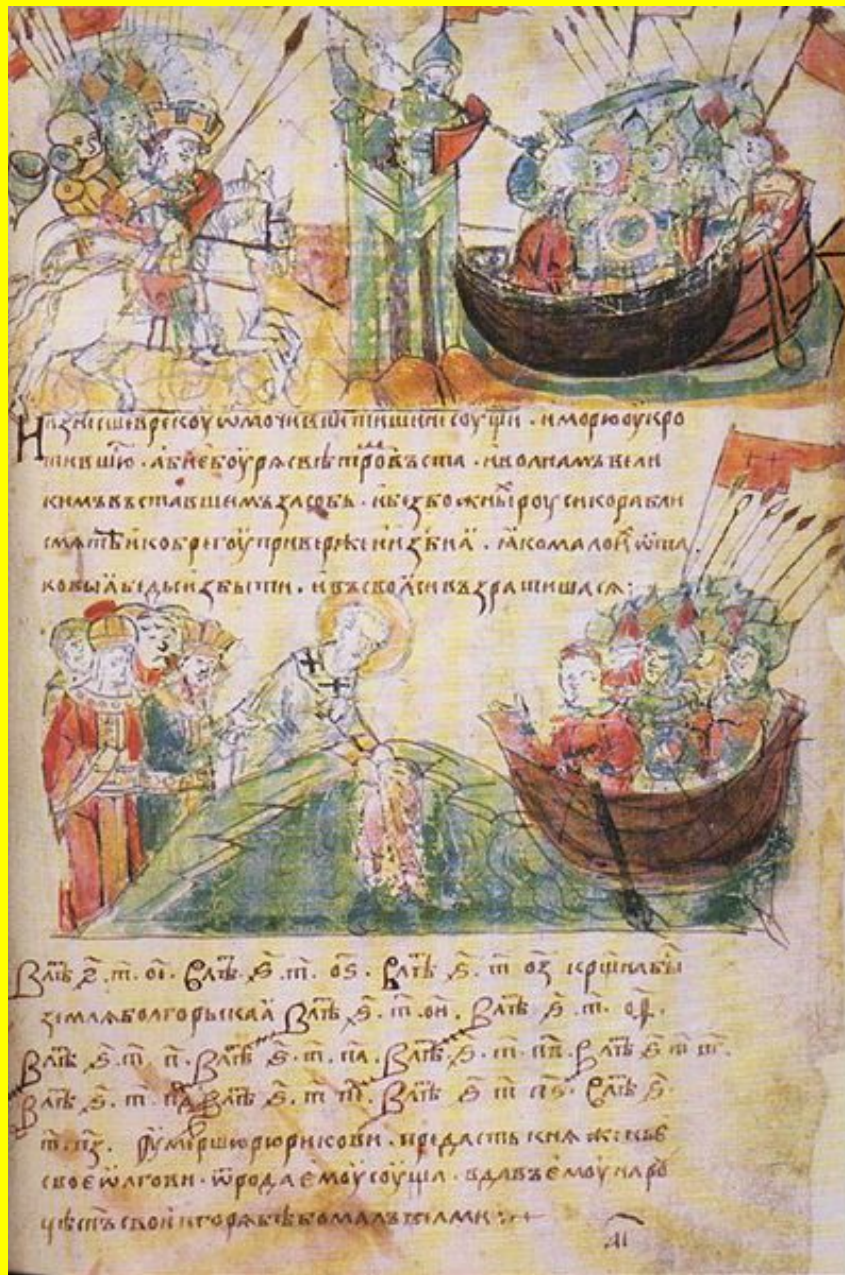 И взнєсшє в рєкоу ѡмочивши тишинѣ соущи . и морю оукро
тившюсѧ . абиє боурѧ с вѣтроⷨ въста . и волнамъ вєли
кимъ въставшємъ засобь . и бєзбожныⷯ роуси корабли
смѧтє и к брєгоу привєржє и изби ꙗ . ꙗко мало иⷯ ѿ та
ковыꙗ бѣды избыти . и въ своꙗси възратишасѧ :
В лⷮѣ ѕ҃ . т҃ . оє҃ . В лⷮѣ ѕ҃ . т҃ . оѕ҃ . В лⷮѣ ѕ҃ . т҃ оз҃ крщⷭна быⷭ
зємлѧ болгорьскаꙗ В лⷮѣ ѕ҃ . т҃ . ои҃ . В лⷮѣ ѕ҃ . т҃ . оѳ҃ .
В лⷮѣ ѕ҃ . т҃ . п҃ . В лⷮѣ ѕ҃ . т҃ . па҃ . В лⷮѣ ѕ҃ . т҃ . пв҃ . В лⷮѣ ѕ҃ т҃ пг҃ .
В лⷮѣ ѕ҃ . т҃ . пд҃ В лⷮѣ ѕ҃ . т҃ . пє҃ . В лⷮѣ ѕ҃ т҃ пѕ҃ . В лⷮѣ ѕ҃
т҃ . пз҃ . Оумєршю рюрикови . прєдасть кнѧжєньє
своє ѡлгови . ѿ рода ємоу соуща . вдавъ ємоу на роу
цѣ сн҃ъ свои игорѧ бѣ бо малъ вєлми :